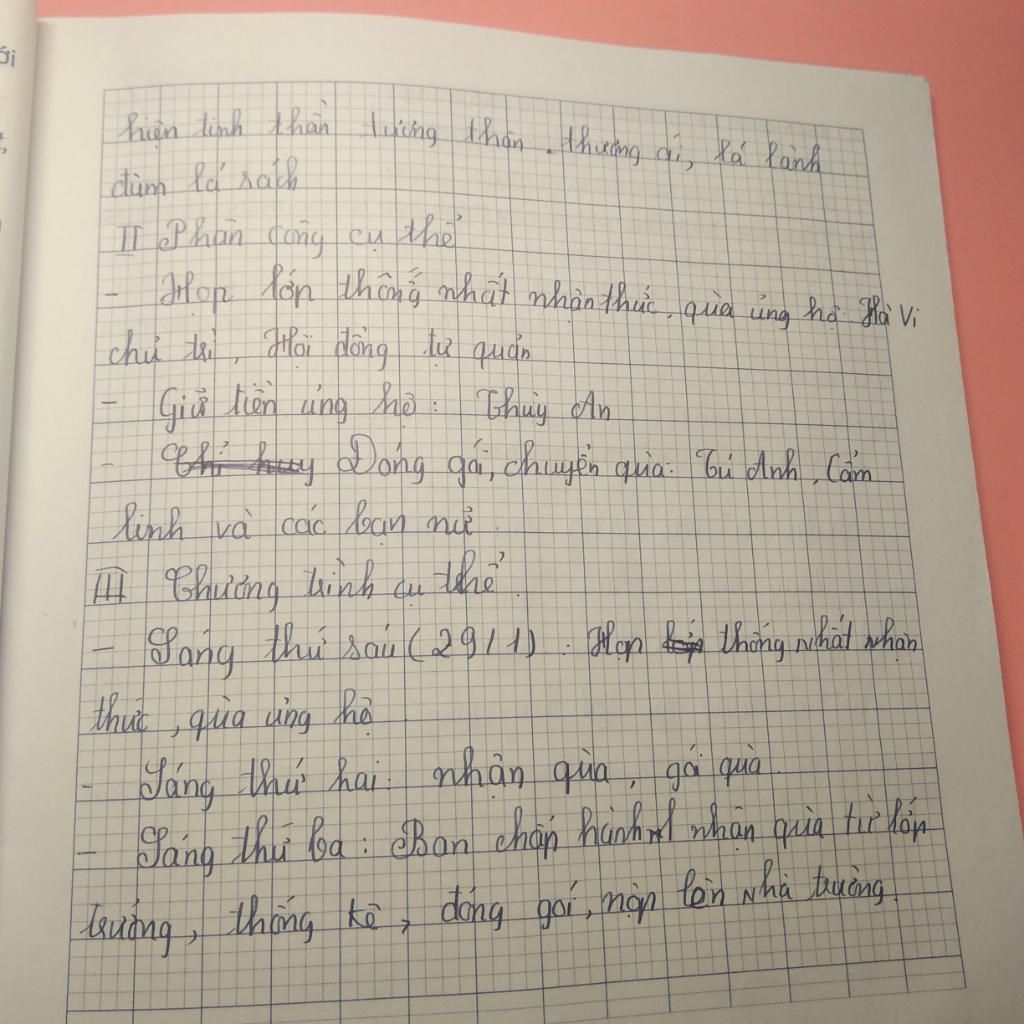 hiện tinh thần tương thân, thương ái, lá lành
đùm lá rách
II Phân công cụ thể
- Họp lớp thống nhất nhận thức, quà ủng hộ: Hà Vi
chủ trì, Hội đồng tự quản
- Giữ tiền ủng hộ: Thùy An
- Đóng gói, chuyển quà: Tú Anh, Cẩm
linh và các bạn nữ.
III Chương trình cụ thể.
- Sáng thứ sáu (29/1): Họp thống nhất nhận
thức, quà ủng hộ
- Sáng thứ hai: nhận quà, gói quà.
- Sáng thứ ba: Ban chấp hành nhận quà từ lớp
trưởng, thống kê, đóng gói, nộp lên nhà trường.